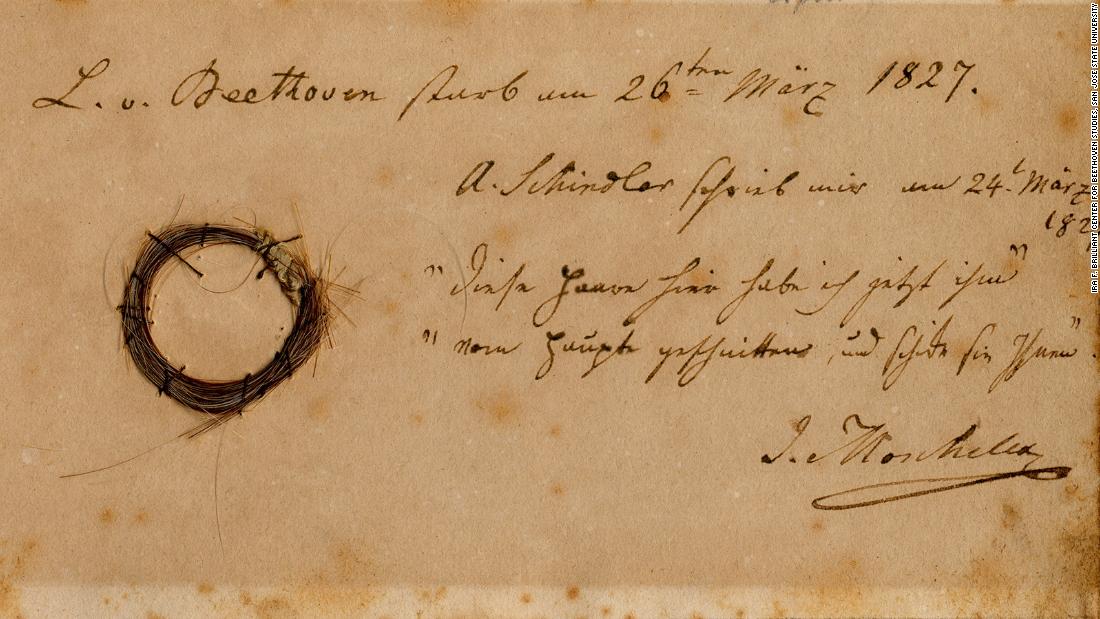 L. v. Beethoven starb am 26ten März 1827.
A. Schindler schrieb mir am 24t März
182
"Diese Haare hier habe ich jetzt ihm"
"vom Haupte geschnitten, und schicke sie Ihnen".
I. Moscheles
IRA F. BRILLIANT CENTER FOR BEETHOVEN STUDIES, SAN JOSE STATE UNIVERSITY